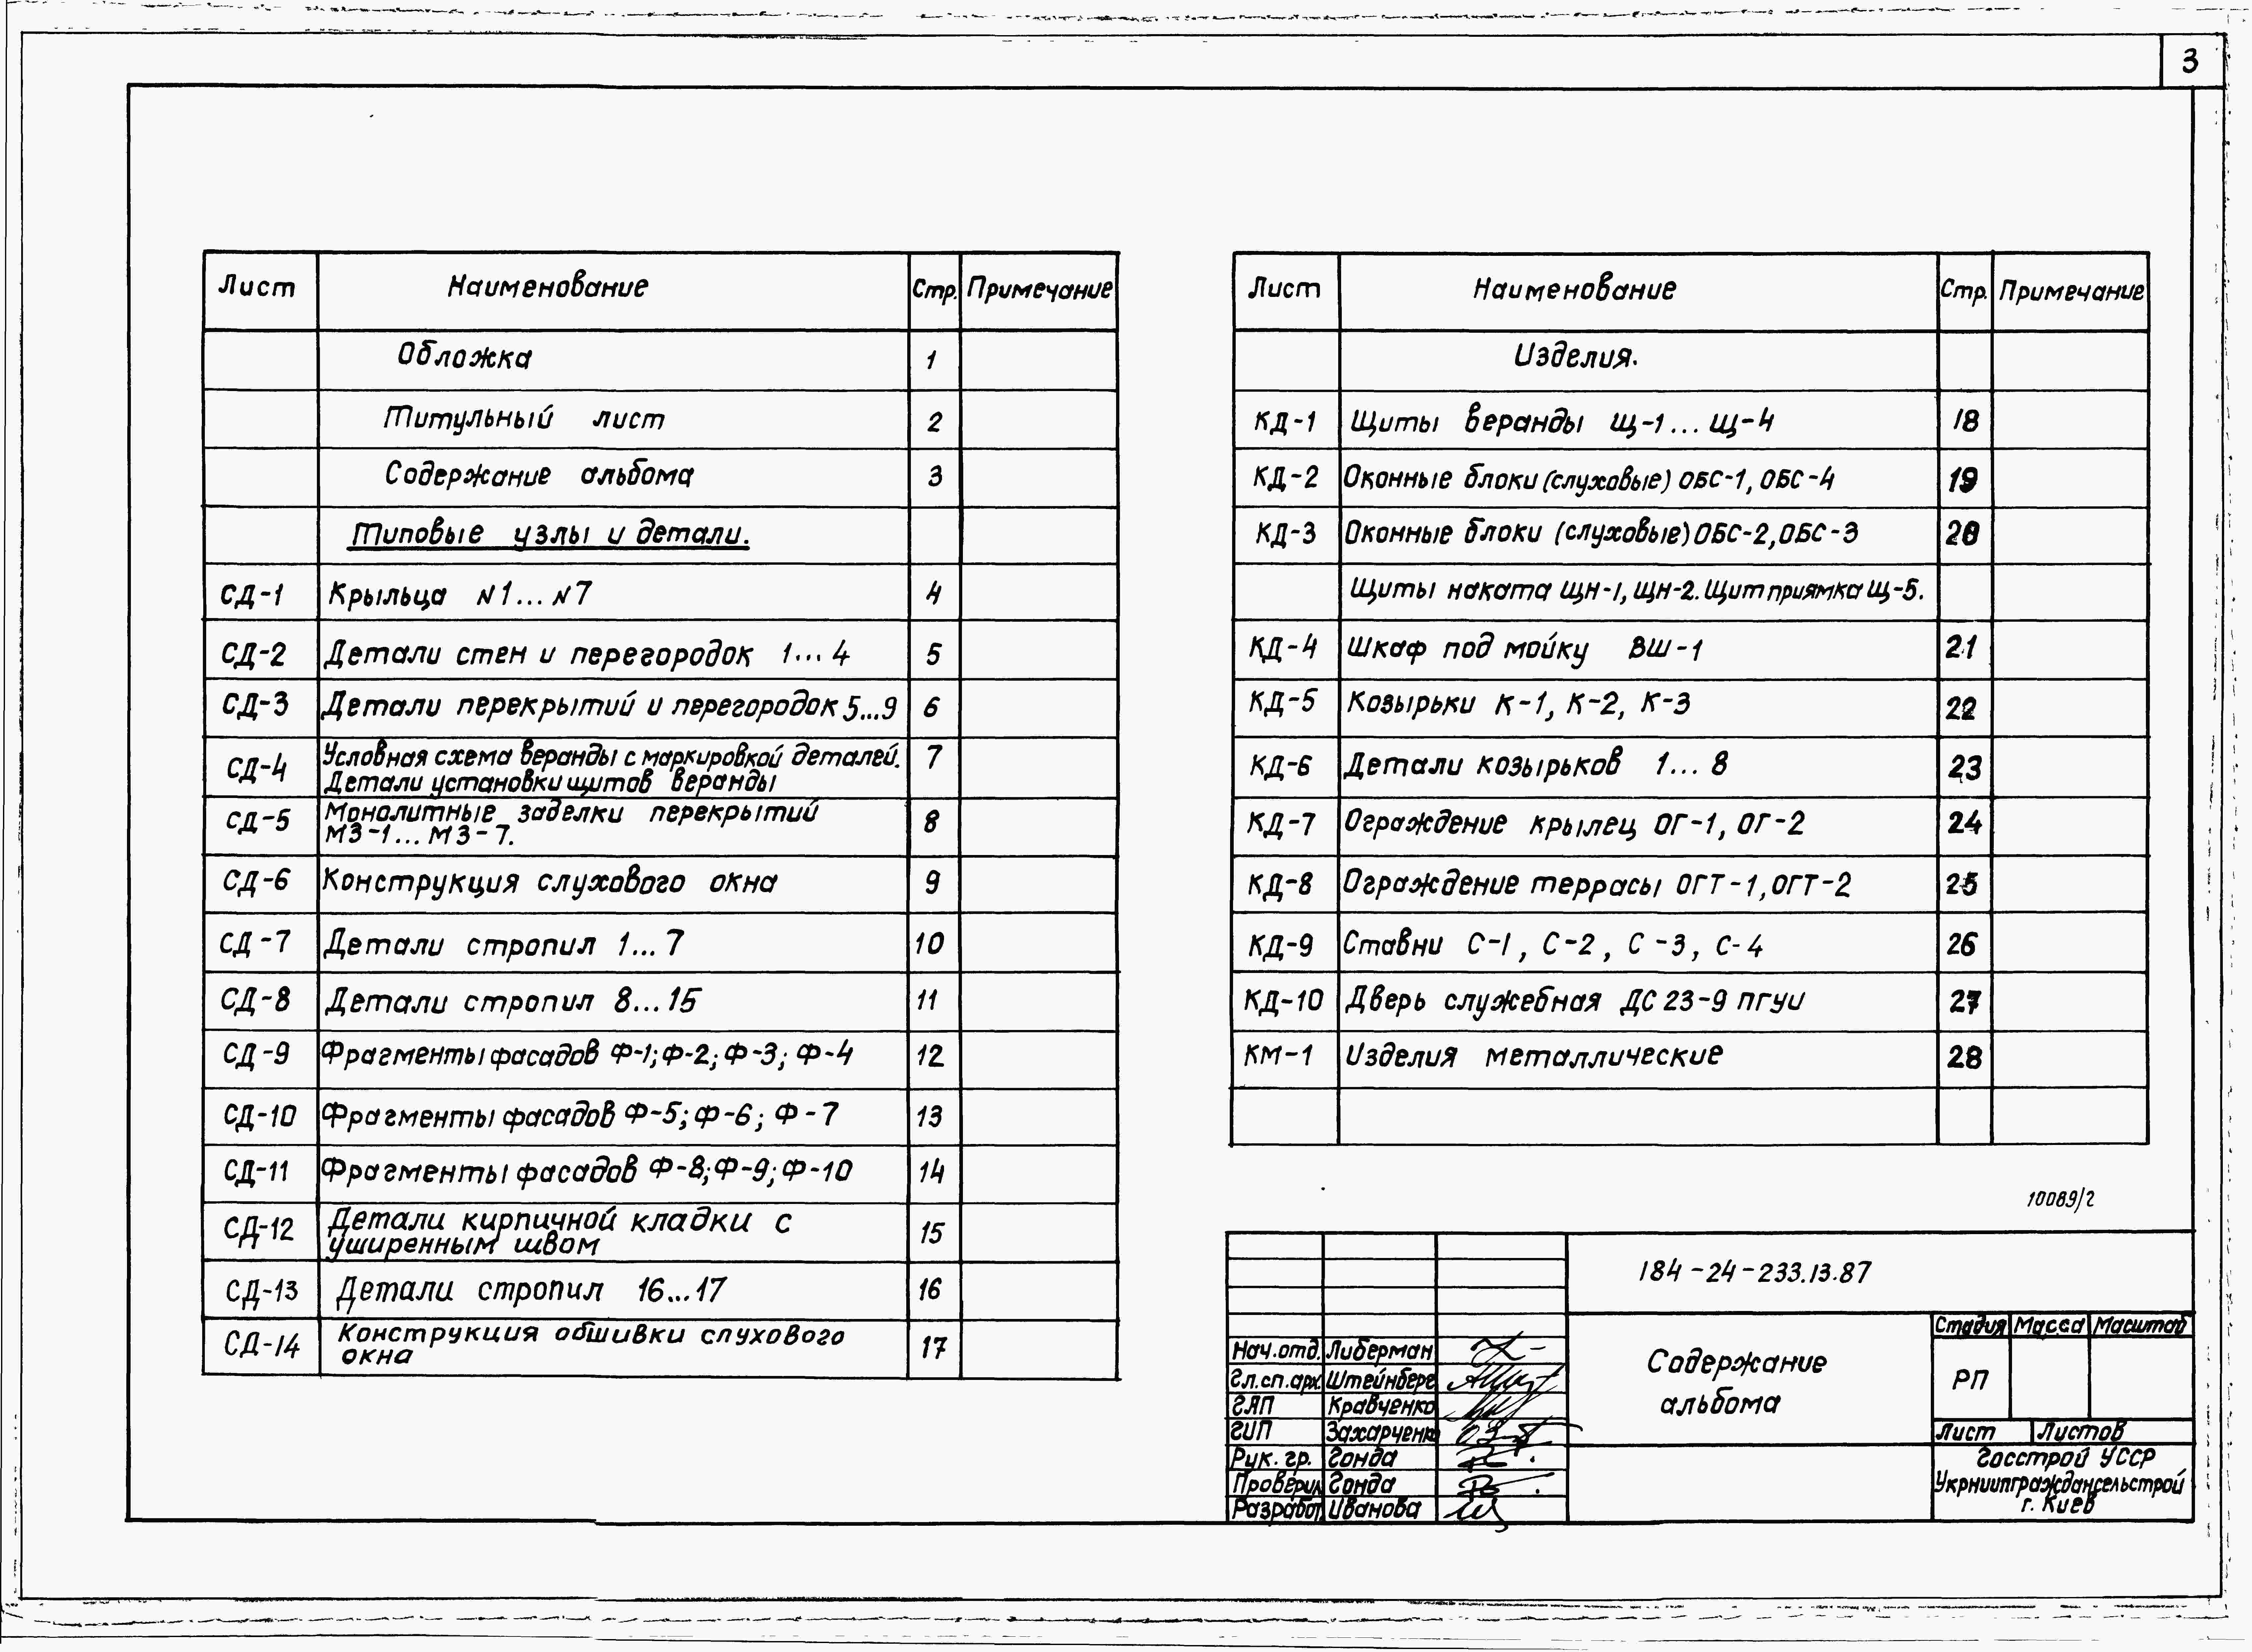 3
Лист Наименование Стр. Примечание
Обложка 1
Титульный лист 2
Содержание альбома 3
Типовые узлы и детали.
СД-1 Крыльца N1...N7 4
СД-2 Детали стен и перегородок 1...4 5
СД-3 Детали перекрытий и перегородок 5...9 6
СД-4 Условная схема веранды с маркировкой деталей. 7
Детали установки щитов веранды
СД-5 Монолитные заделки перекрытий 8
МЗ-1...МЗ-7.
СД-6 Конструкция слухового окна 9
СД-7 Детали стропил 1...7 10
СД-8 Детали стропил 8...15 11
СД-9 Фрагменты фасадов Ф-1; Ф-2; Ф-3; Ф-4 12
СД-10 Фрагменты фасадов Ф-5; Ф-6; Ф-7 13
СД-11 Фрагменты фасадов Ф-8; Ф-9; Ф-10 14
СД-12 Детали кирпичной кладки с 15
уширенным швом
СД-13 Детали стропил 16...17 16
СД-14 Конструкция обшивки слухового 17
окна
Лист Наименование Стр. Примечание
Изделия.
КД-1 Щиты веранды Щ-1...Щ-4 18
КД-2 Оконные блоки (слуховые) ОБС-1, ОБС-4 19
КД-3 Оконные блоки (слуховые) ОБС-2, ОБС-3 20
Щиты наката ЩН-1, ЩН-2. Щит приямка Щ-5.
КД-4 Шкаф под мойку ВШ-1 21
КД-5 Козырьки К-1, К-2, К-3 22
КД-6 Детали козырьков 1...8 23
КД-7 Ограждение крылец ОГ-1, ОГ-2 24
КД-8 Ограждение террасы ОГТ-1, ОГТ-2 25
КД-9 Ставни С-1, С-2, С-3, С-4 26
КД-10 Дверь служебная ДС 23-9 ПГУИ 27
КМ-1 Изделия металлические 28
10089/2
184-24-233.13.87
Содержание
альбома
Стадия Масса Масштаб
РП
Лист Листов
Госстрой УССР
Укрниипграждансельстрой
г. Киев
Нач.отд. Либерман
Гл.сп.арх. Штейнберг
ГАП Кравченко
ГИП Захарченко
Рук. гр. Гонда
Проверил Гонда
Разработ. Иванова